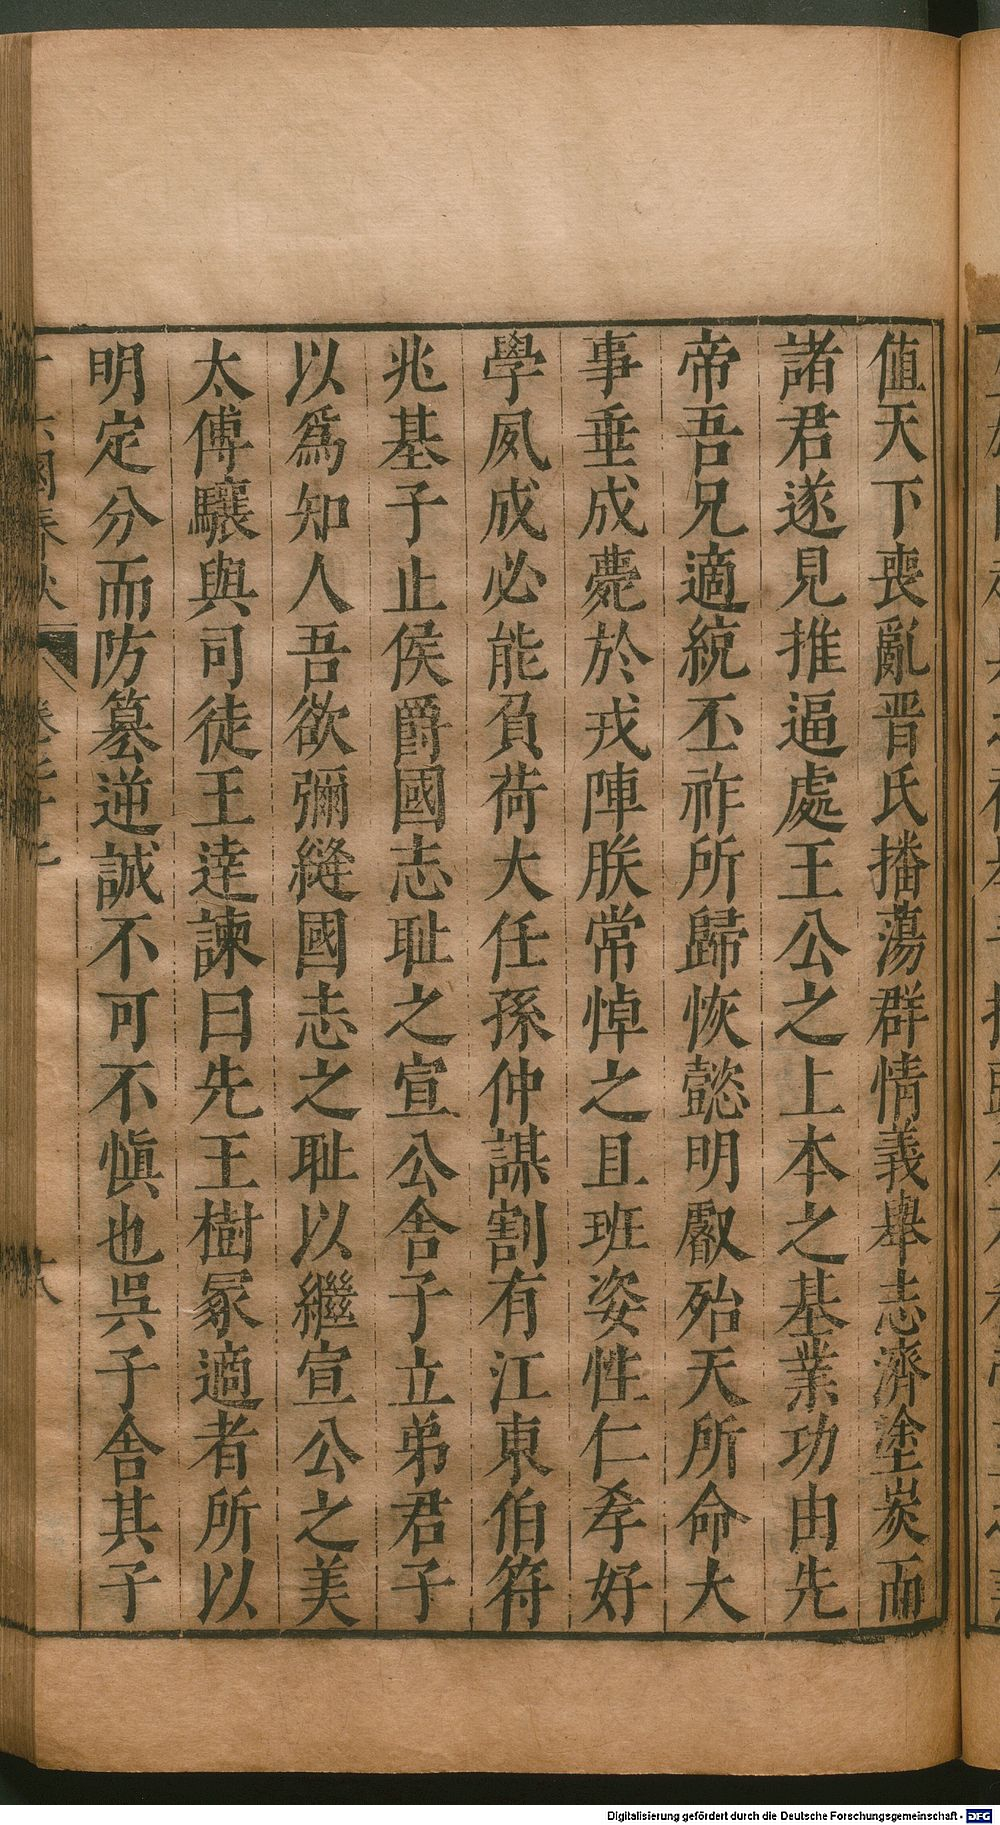 值天下喪亂晉氏播蕩群情義舉志濟塗炭而
諸君遂見推逼處王公之上本之基業功由先
帝吾兄適統丕祚所歸恢懿明叡殆天所命大
事垂成薨於戎陣朕常悼之且班姿性仁孝好
學夙成必能負荷大任孫仲謀割有江東伯符
兆基子止侯爵國志耻之宣公舍子立弟君子
以爲知人吾欲彌縫國志之耻以繼宣公之美
太傅驤與司徒王達諫曰先王樹冢適者所以
明定分而防篡逆誠不可不愼也吳子舍其子
國春秋
Digitalisierung gefördert durch die Deutsche Forschungsgemeinschaft - DFG